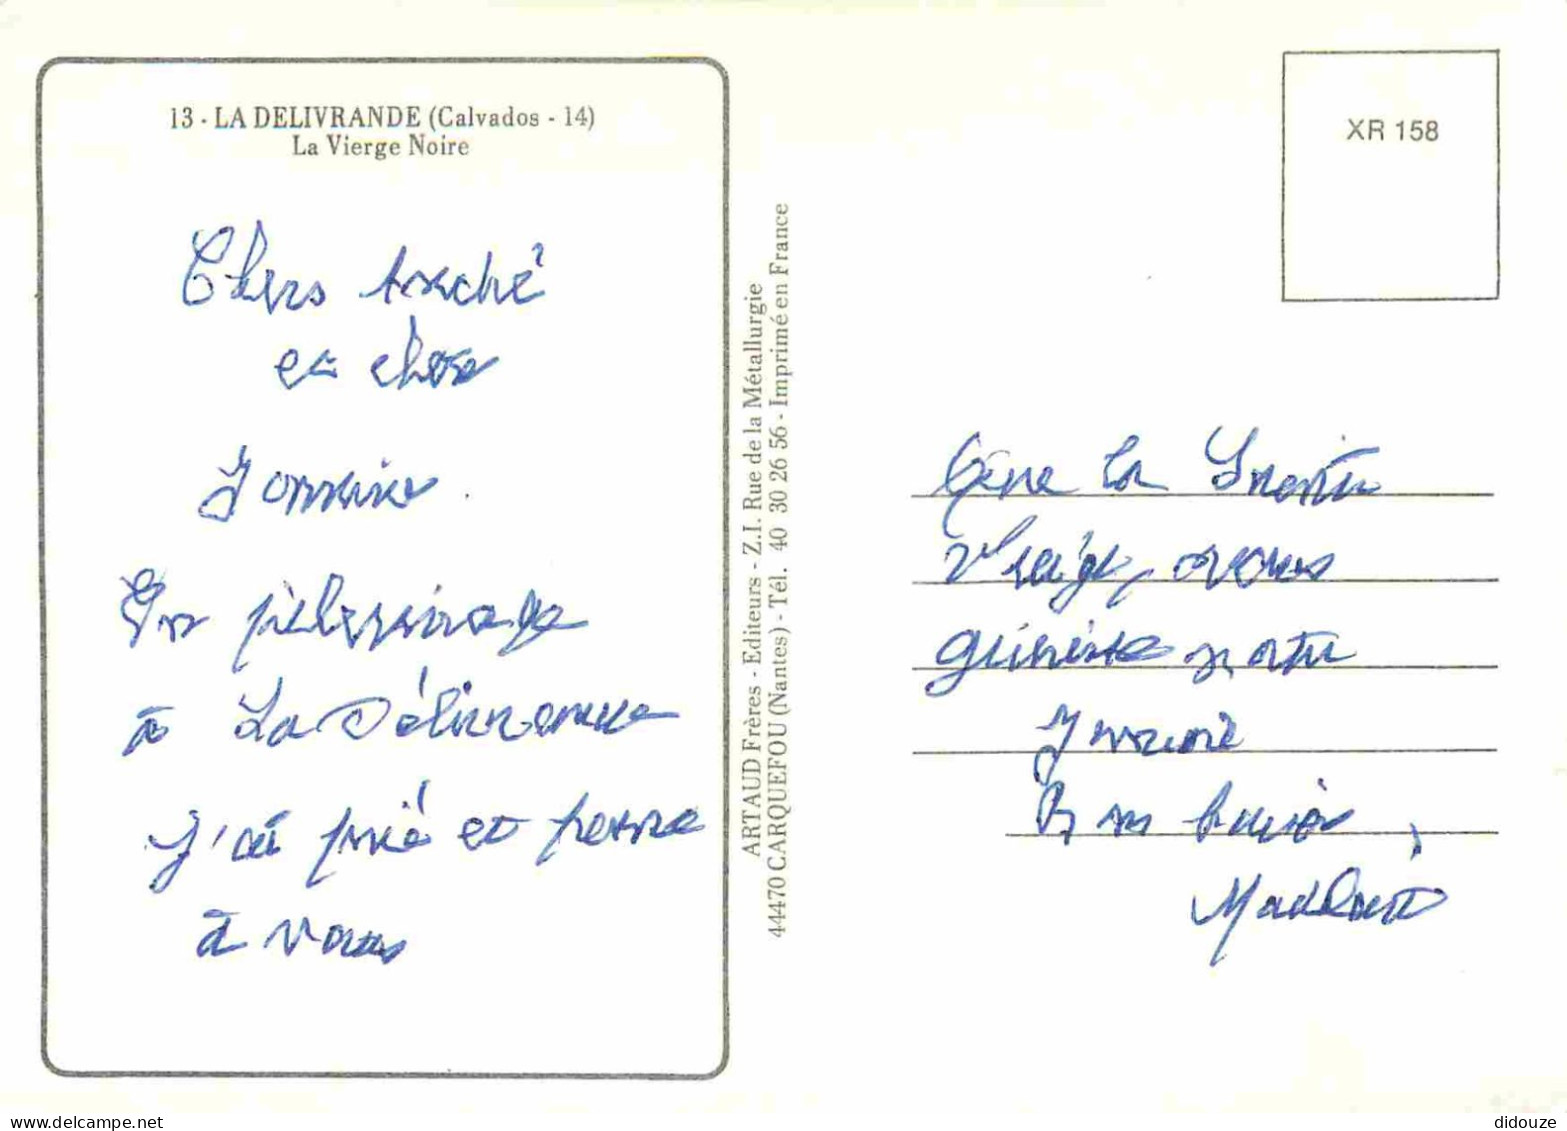 13 - LA DELIVRANDE (Calvados - 14)
La Vierge Noire
Chers André
et chère
Yvonne
En pèlerinage
à La Délivrande
J'ai prié et pensé
à vous
ARTAUD Frères - Editeurs - Z.I. Rue de la Métallurgie
44470 CARQUEFOU (Nantes) - Tél. 40 30 26 56 - Imprimé en France
XR 158
Que la Sainte
Vierge, vous
guérisse
Bons baisers,
didouze